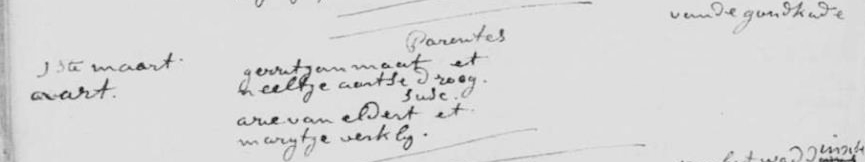 vande goudkade
Parentes
1ste maart. gerrit jan maat et
aart. neeltje aartse droog.
susc.
arie van eldert et
marytje verkly.